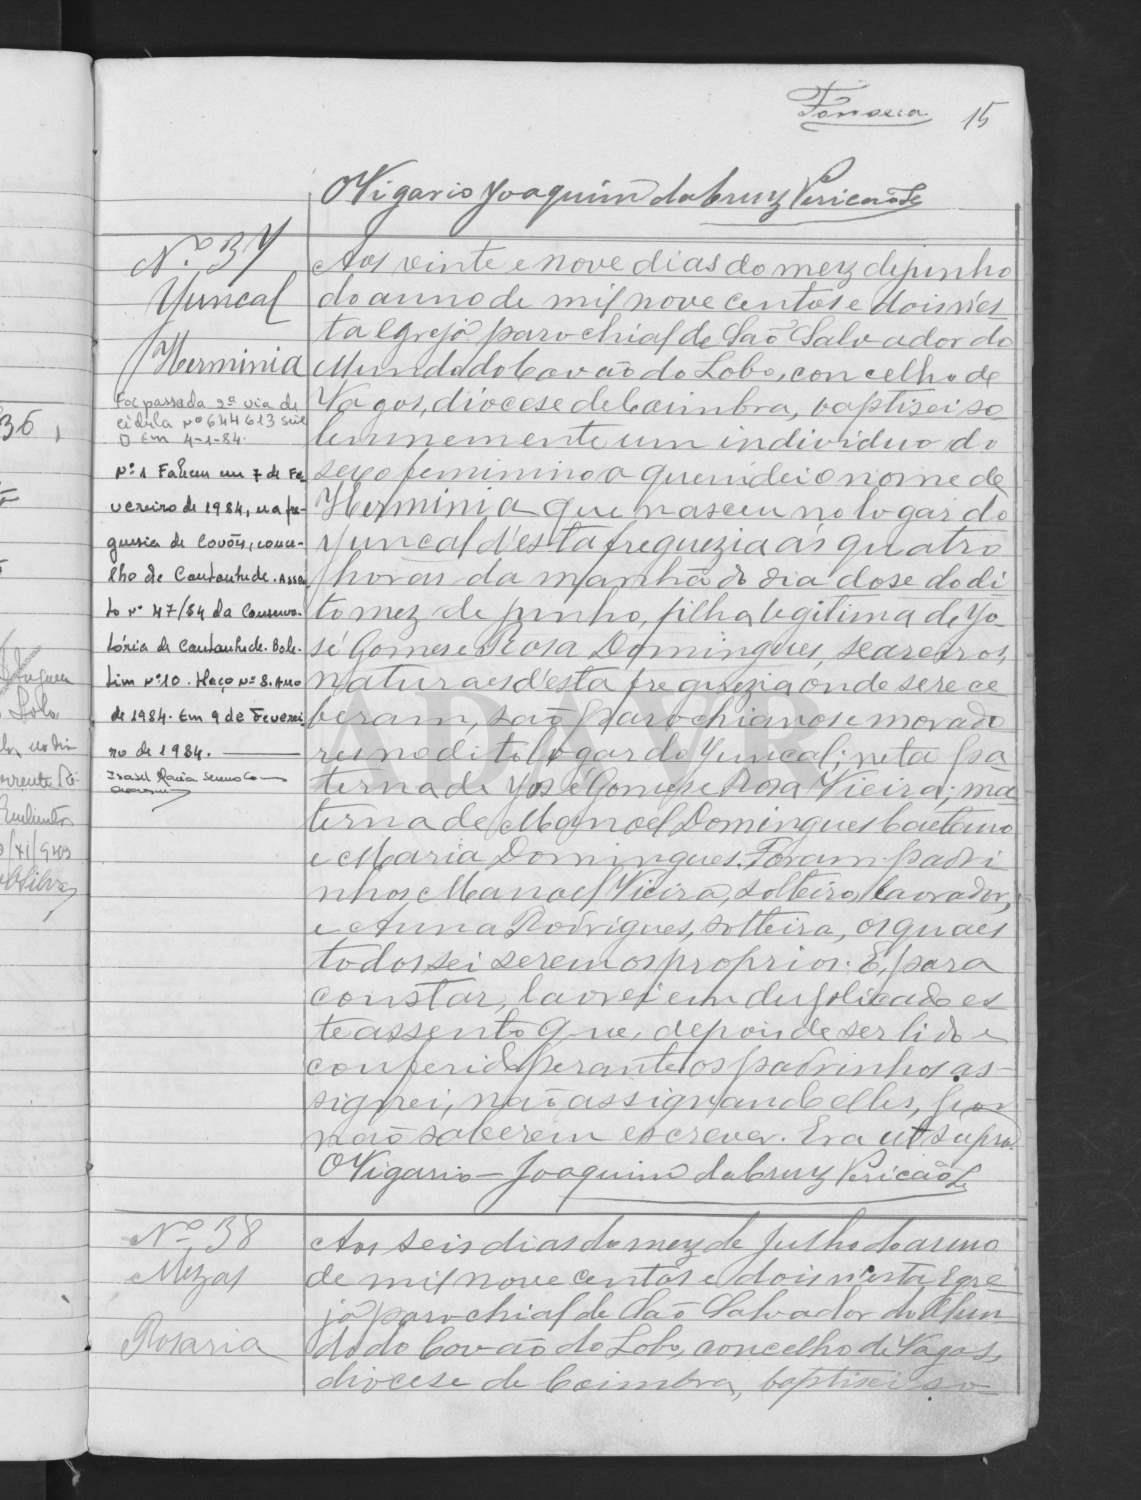 Fonseca 15
O Vigario Joaquim da Cruz Pericão
Nº 37
Juncal
Herminia
Foi passada 2ª via de
cédula nº 644613 série
D em 4-1-84.
Nº 1 Faleceu em 7 de Fe-
vereiro de 1984, na fre-
guesia de Covões, conce-
lho de Cantanhede. Assen
to nº 47/84 da Conserva-
tória de Cantanhede. Bole-
tim nº 10. Maço nº 8. Ano
de 1984. Em 9 de Feverei
ro de 1984.
Isabel Maria
Aos vinte e nove dias do mez de junho
do anno de mil nove centos e dois n'es
ta Egreja parochial de São Salvador do
Mundo do Covão do Lobo, concelho de
Vagos, diocese de Coimbra, baptisei so
lemnemente um individuo do
sexo feminino a quem dei o nome de
Herminia que nasceu no logar do
Juncal d'esta freguezia ás quatro
horas da manhã do dia dose do di
to mez de junho, filha legitima de Jo-
sé Gomes e Rosa Domingues, seareiros,
naturaes d'esta freguezia onde se rece
beram, são parochianos e morado
res no dito logar do Juncal; neta pa
terna de José Gomes e Rosa Vieira; ma
terna de Manoel Domingues Caetano
e Maria Domingues. Foram padri
nhos Manoel Vieira, solteiro, lavrador,
e Anna Rodrigues, solteira, os quaes
todos sei serem os proprios. E, para
constar, lavrei em duplicado es
te assento que, depois de ser lido e
conferido perante os padrinhos as-
signei, não assignando elles, por
não saberem escrever. Era ut supra.
O Vigario - Joaquim da Cruz Pericão
Nº 38
Mezas
Rosaria
Aos seis dias do mez de Julho do anno
de mil nove centos e dois n'esta Egre
ja parochial de São Salvador do Mun
do do Covão do Lobo, concelho de Vagos,
diocese de Coimbra, baptisei so
36
Lobo
ADAVR